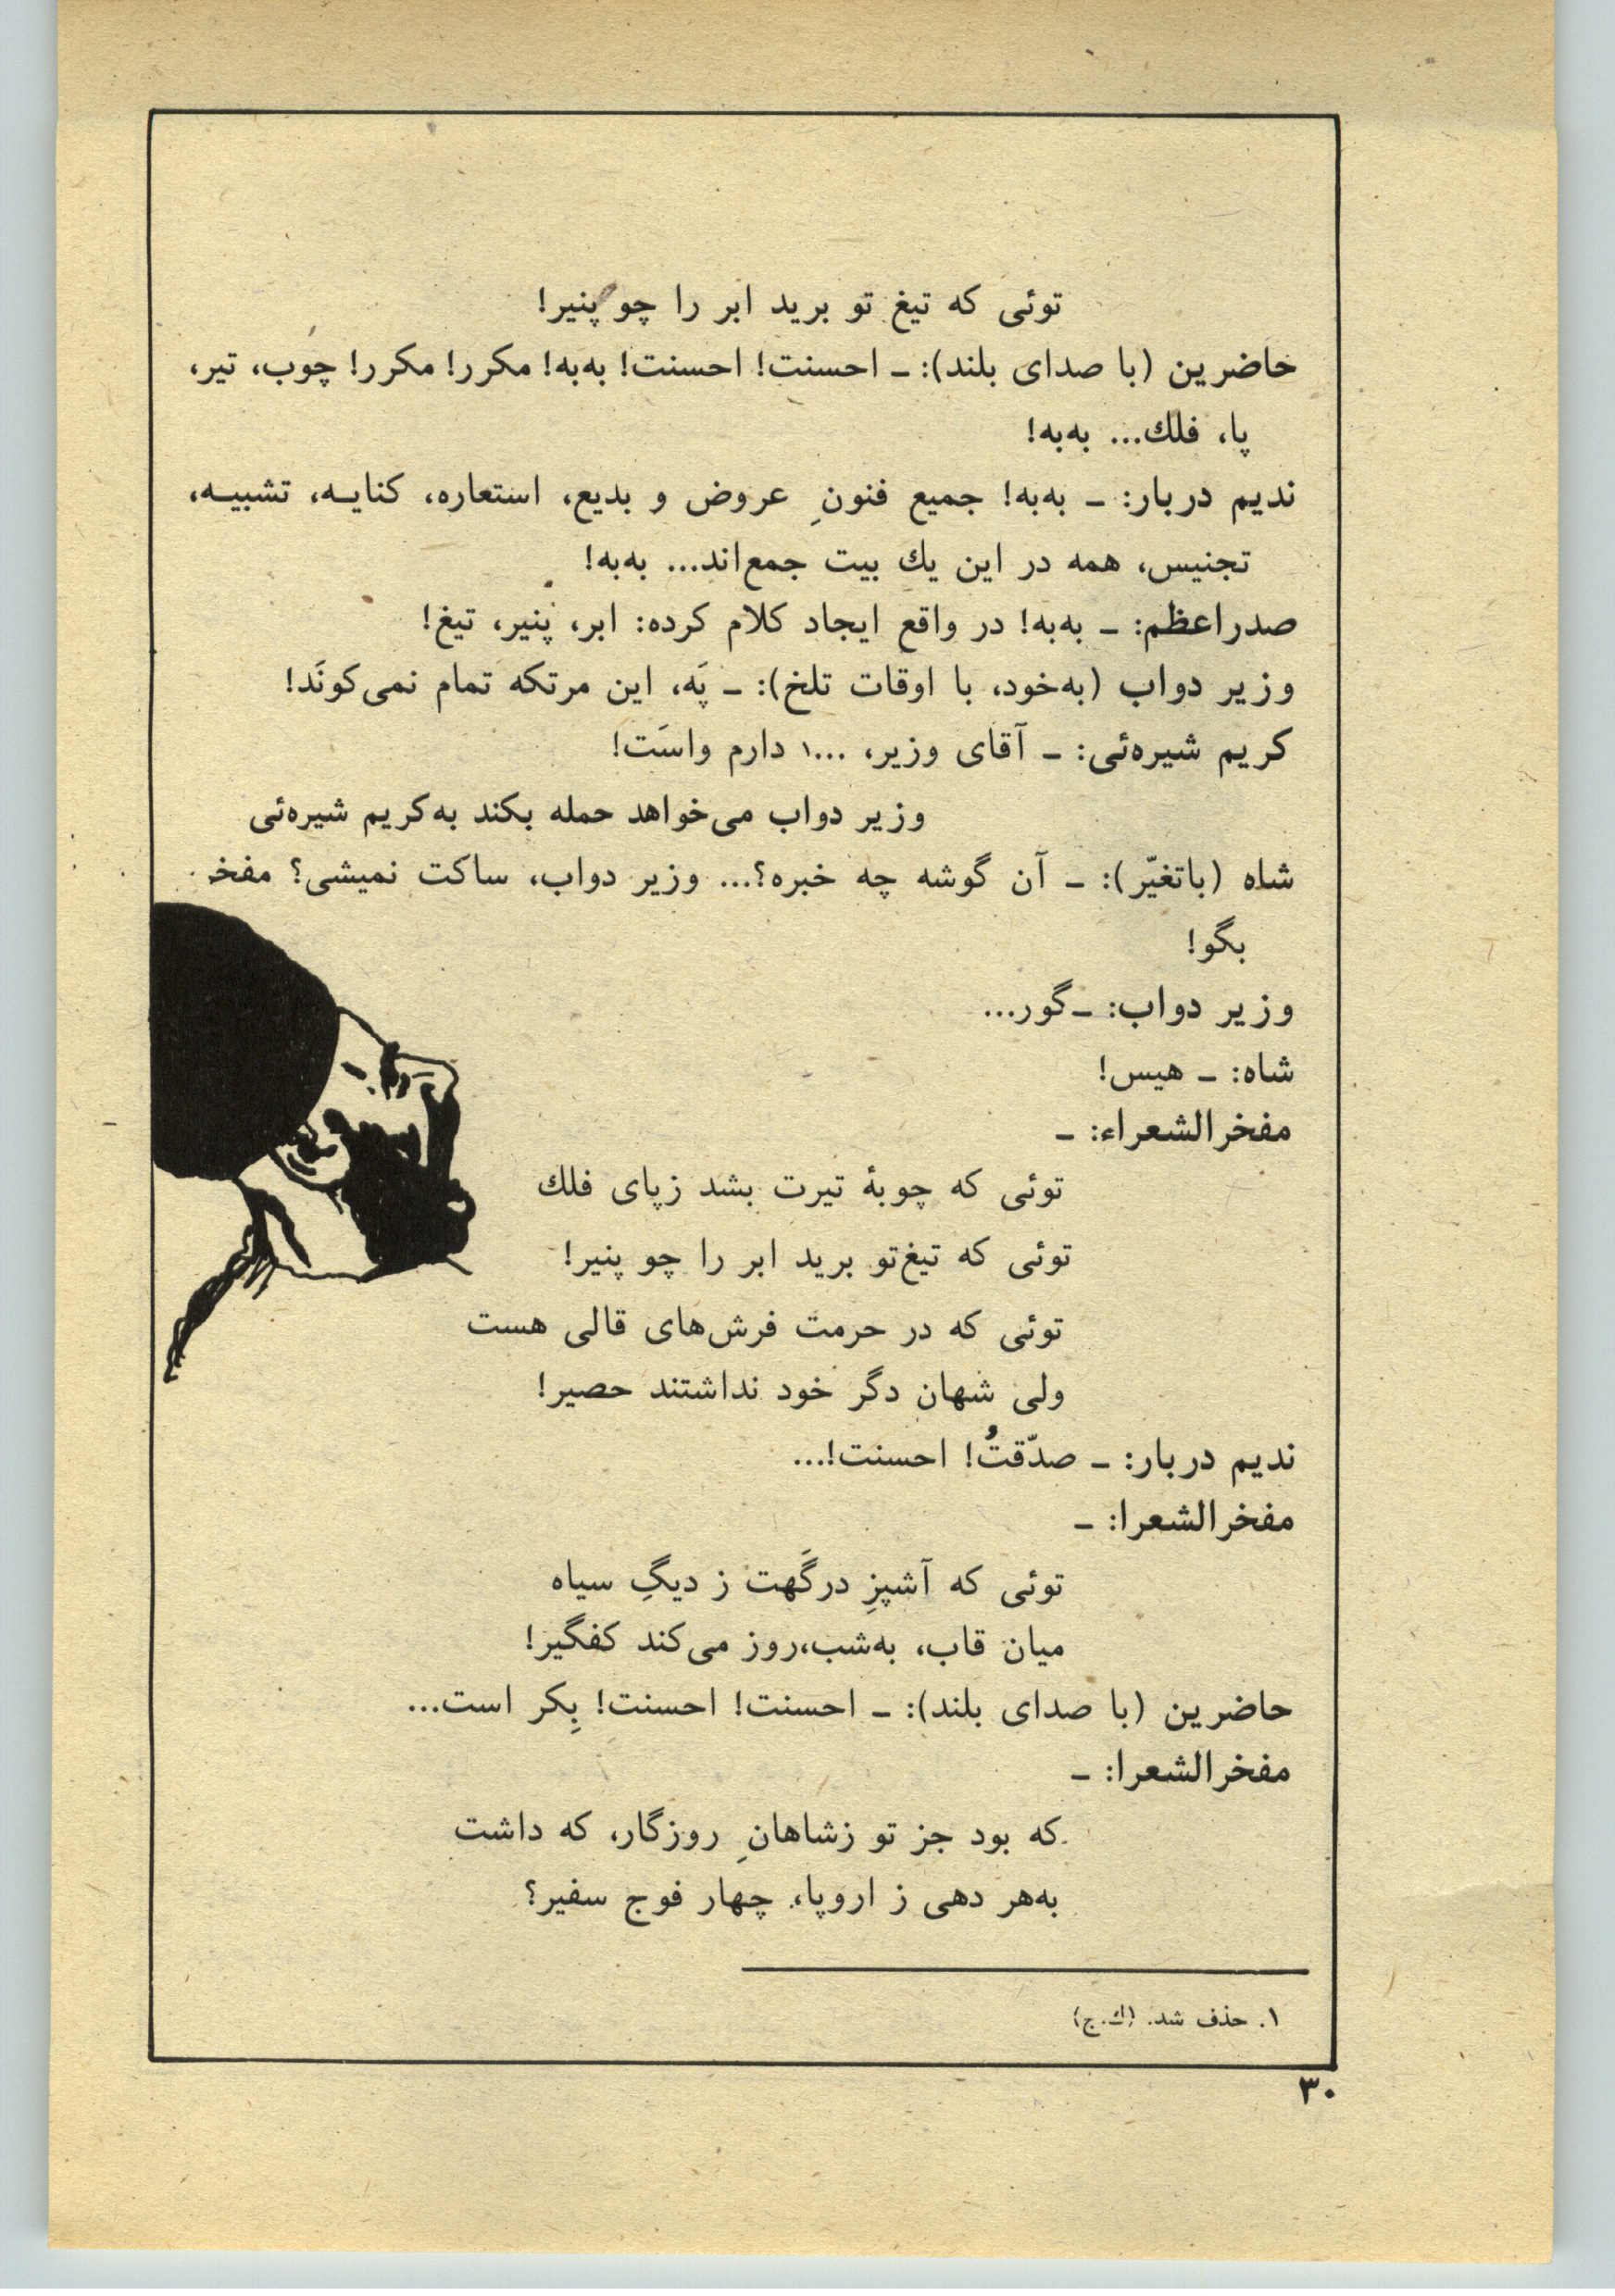 توئی که تیغ تو برید ابر را چو پنیر!
حاضرین (با صدای بلند): ـ احسنت! احسنت! به‌به! مکرر! مکرر! چوب، تیر،
پا، فلك... به‌به!
ندیم دربار: ـ به‌به! جمیع فنونِ عروض و بدیع، استعاره، کنایـه، تشبیـه،
تجنیس، همه در این یك بیت جمع‌اند... به‌به!
صدراعظم: ـ به‌به! در واقع ایجاد کلام کرده: ابر، پنیر، تیغ!
وزیر دواب (به‌خود، با اوقات تلخ): ـ پَه، این مرتکه تمام نمی‌کونَد!
کریم شیره‌ئی: ـ آقای وزیر، ...۱ دارم واسَت!
وزیر دواب می‌خواهد حمله بکند به‌کریم شیره‌ئی
شاه (باتغیّر): ـ آن گوشه چه خبره؟... وزیر دواب، ساکت نمیشی؟ مفخر
بگو!
وزیر دواب: ـ گور...
شاه: ـ هیس!
مفخرالشعراء: ـ
توئی که چوبهٔ تیرت بشد زپای فلك
توئی که تیغ‌تو برید ابر را چو پنیر!
توئی که در حرمت فرش‌های قالی هست
ولی شهان دگر خود نداشتند حصیر!
ندیم دربار: ـ صدّقتُ! احسنت!...
مفخرالشعرا: ـ
توئی که آشپزِ درگَهت ز دیگِ سیاه
میان قاب، به‌شب،روز می‌کند کفگیر!
حاضرین (با صدای بلند): ـ احسنت! احسنت! بِکر است...
مفخرالشعرا: ـ
که بود جز تو زشاهانِ روزگار، که داشت
به‌هر دهی ز اروپا، چهار فوج سفیر؟
۱. حذف شد. (ك.ج)
۳۰